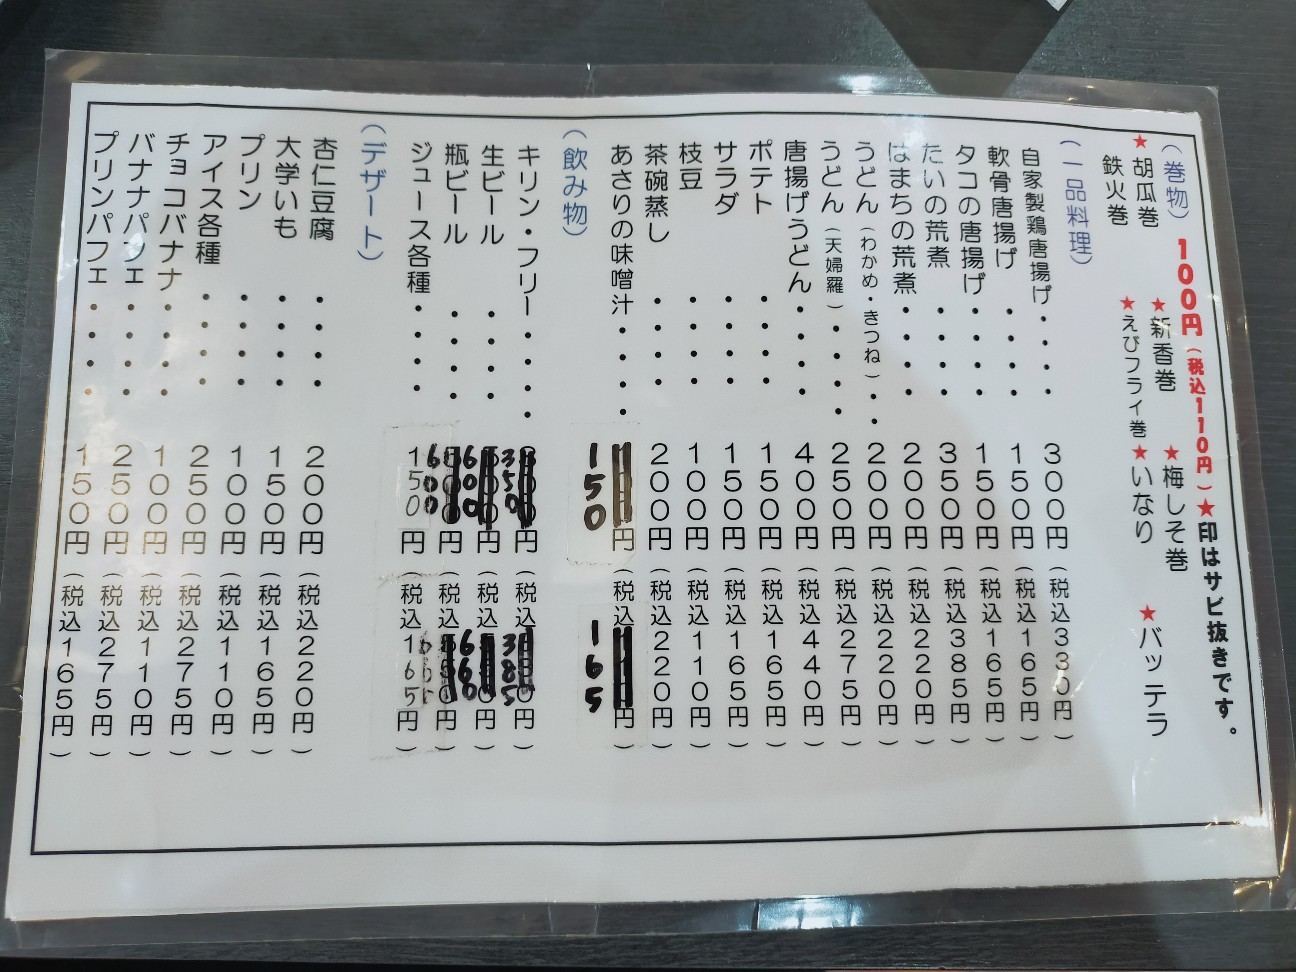 (巻物) 100円(税込110円)★印はサビ抜きです。
★胡瓜巻 ★新香巻 ★梅しそ巻 ★バッテラ
鉄火巻 ★えびフライ巻 ★いなり
(一品料理)
自家製鶏唐揚げ・・・・300円(税込330円)
軟骨唐揚げ・・・・150円(税込165円)
タコの唐揚げ・・・・150円(税込165円)
たいの荒煮・・・・350円(税込385円)
はまちの荒煮・・・・200円(税込220円)
うどん(わかめ・きつね)・・200円(税込220円)
うどん(天婦羅)・・・・250円(税込275円)
唐揚げうどん・・・・400円(税込440円)
ポテト・・・・150円(税込165円)
サラダ・・・・150円(税込165円)
枝豆・・・・100円(税込110円)
茶碗蒸し・・・・200円(税込220円)
あさりの味噌汁・・・・150円(税込165円)
(飲み物)
キリン・フリー・・・・350円(税込385円)
生ビール・・・・600円(税込660円)
瓶ビール・・・・600円(税込
ジュース各種・・・・150円(税込165円)
(デザート)
杏仁豆腐・・・・200円(税込220円)
大学いも・・・・150円(税込165円)
プリン・・・・100円(税込110円)
アイス各種・・・・250円(税込275円)
チョコバナナ・・・・100円(税込110円)
バナナパフェ・・・・250円(税込275円)
プリンパフェ・・・・150円(税込165円)